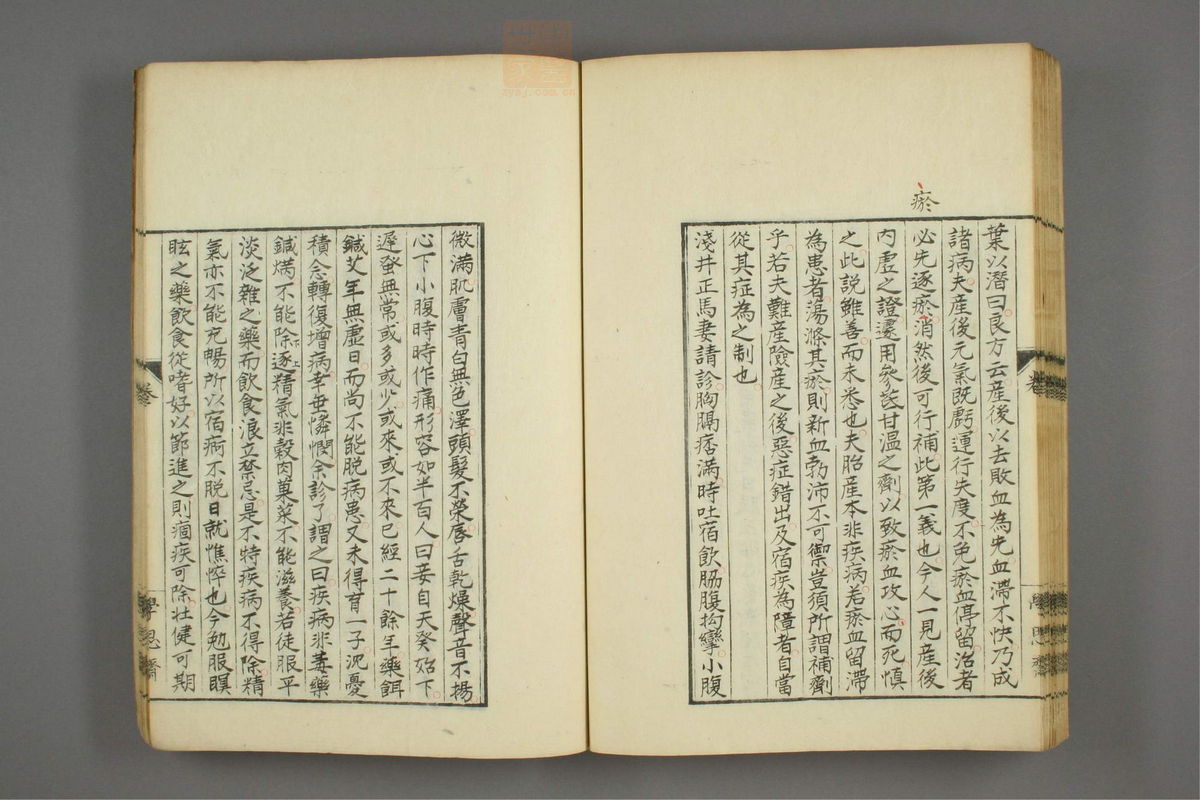 瘀
葉以潛曰良方云産後以去敗血為先血滯不快乃成
諸病夫産後元氣既虧運行失度不免瘀血停留治者
必先逐瘀消然後可行補此第一義也今人一見産後
内虛之證遽用參芪甘溫之劑以致瘀血攻心而死慎
之此說雖善而未悉也夫胎産本非疾病若瘀血留滯
為患者蕩滌其瘀則新血勃沛不可禦豈須所謂補劑
乎若夫難産險産之後惡症錯出及宿疾為障者自當
從其症為之制也
淺井正馬妻請診胸膈痞滿時吐宿飲脇腹拘攣小腹
微満肌膚青白無色澤頭髮不榮唇舌乾燥聲音不揚
心下小腹時時作痛形容如半百人曰妾自天癸始下
遲發無常或多或少或來或不來已經二十餘年藥餌
鍼艾年無虛日而尚不能脫病患又未得育一子沉憂
積念轉復增病幸垂憐憫余診了謂之曰疾病非毒藥
鍼焫不能除逐精氣非穀肉菓菜不能滋養若徒服平
下上
淡泛雜之藥而飲食浪立禁忌是不特疾病不得除精
氣亦不能充暢所以宿痾不脫日就憔悴也今勉服瞑
眩之藥飲食從嗜好以節進之則痼疾可除壯健可期
卷
學思齋